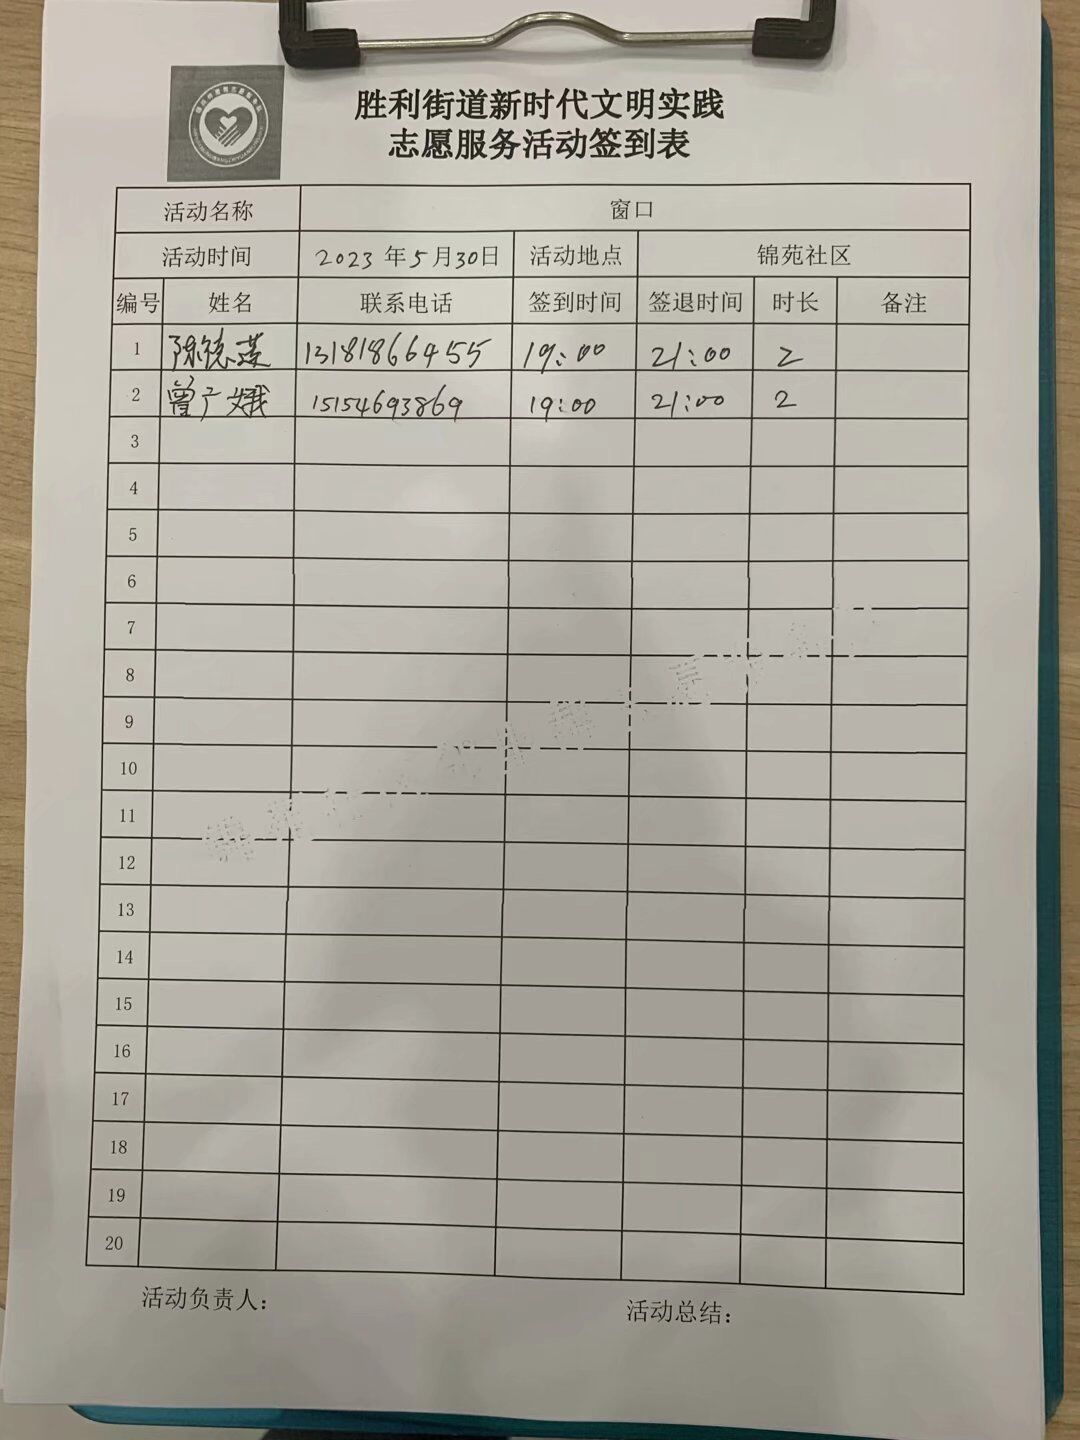 胜利街道新时代文明实践
志愿服务活动签到表
活动名称 窗口
活动时间 2023年5月30日 活动地点 锦苑社区
编号 姓名 联系电话 签到时间 签退时间 时长 备注
1 陈德莲 13181866455 19:00 21:00 2
2 曾广娥 15154693869 19:00 21:00 2
3
4
5
6
7
8
9
10
11
12
13
14
15
16
17
18
19
20
活动负责人： 活动总结：